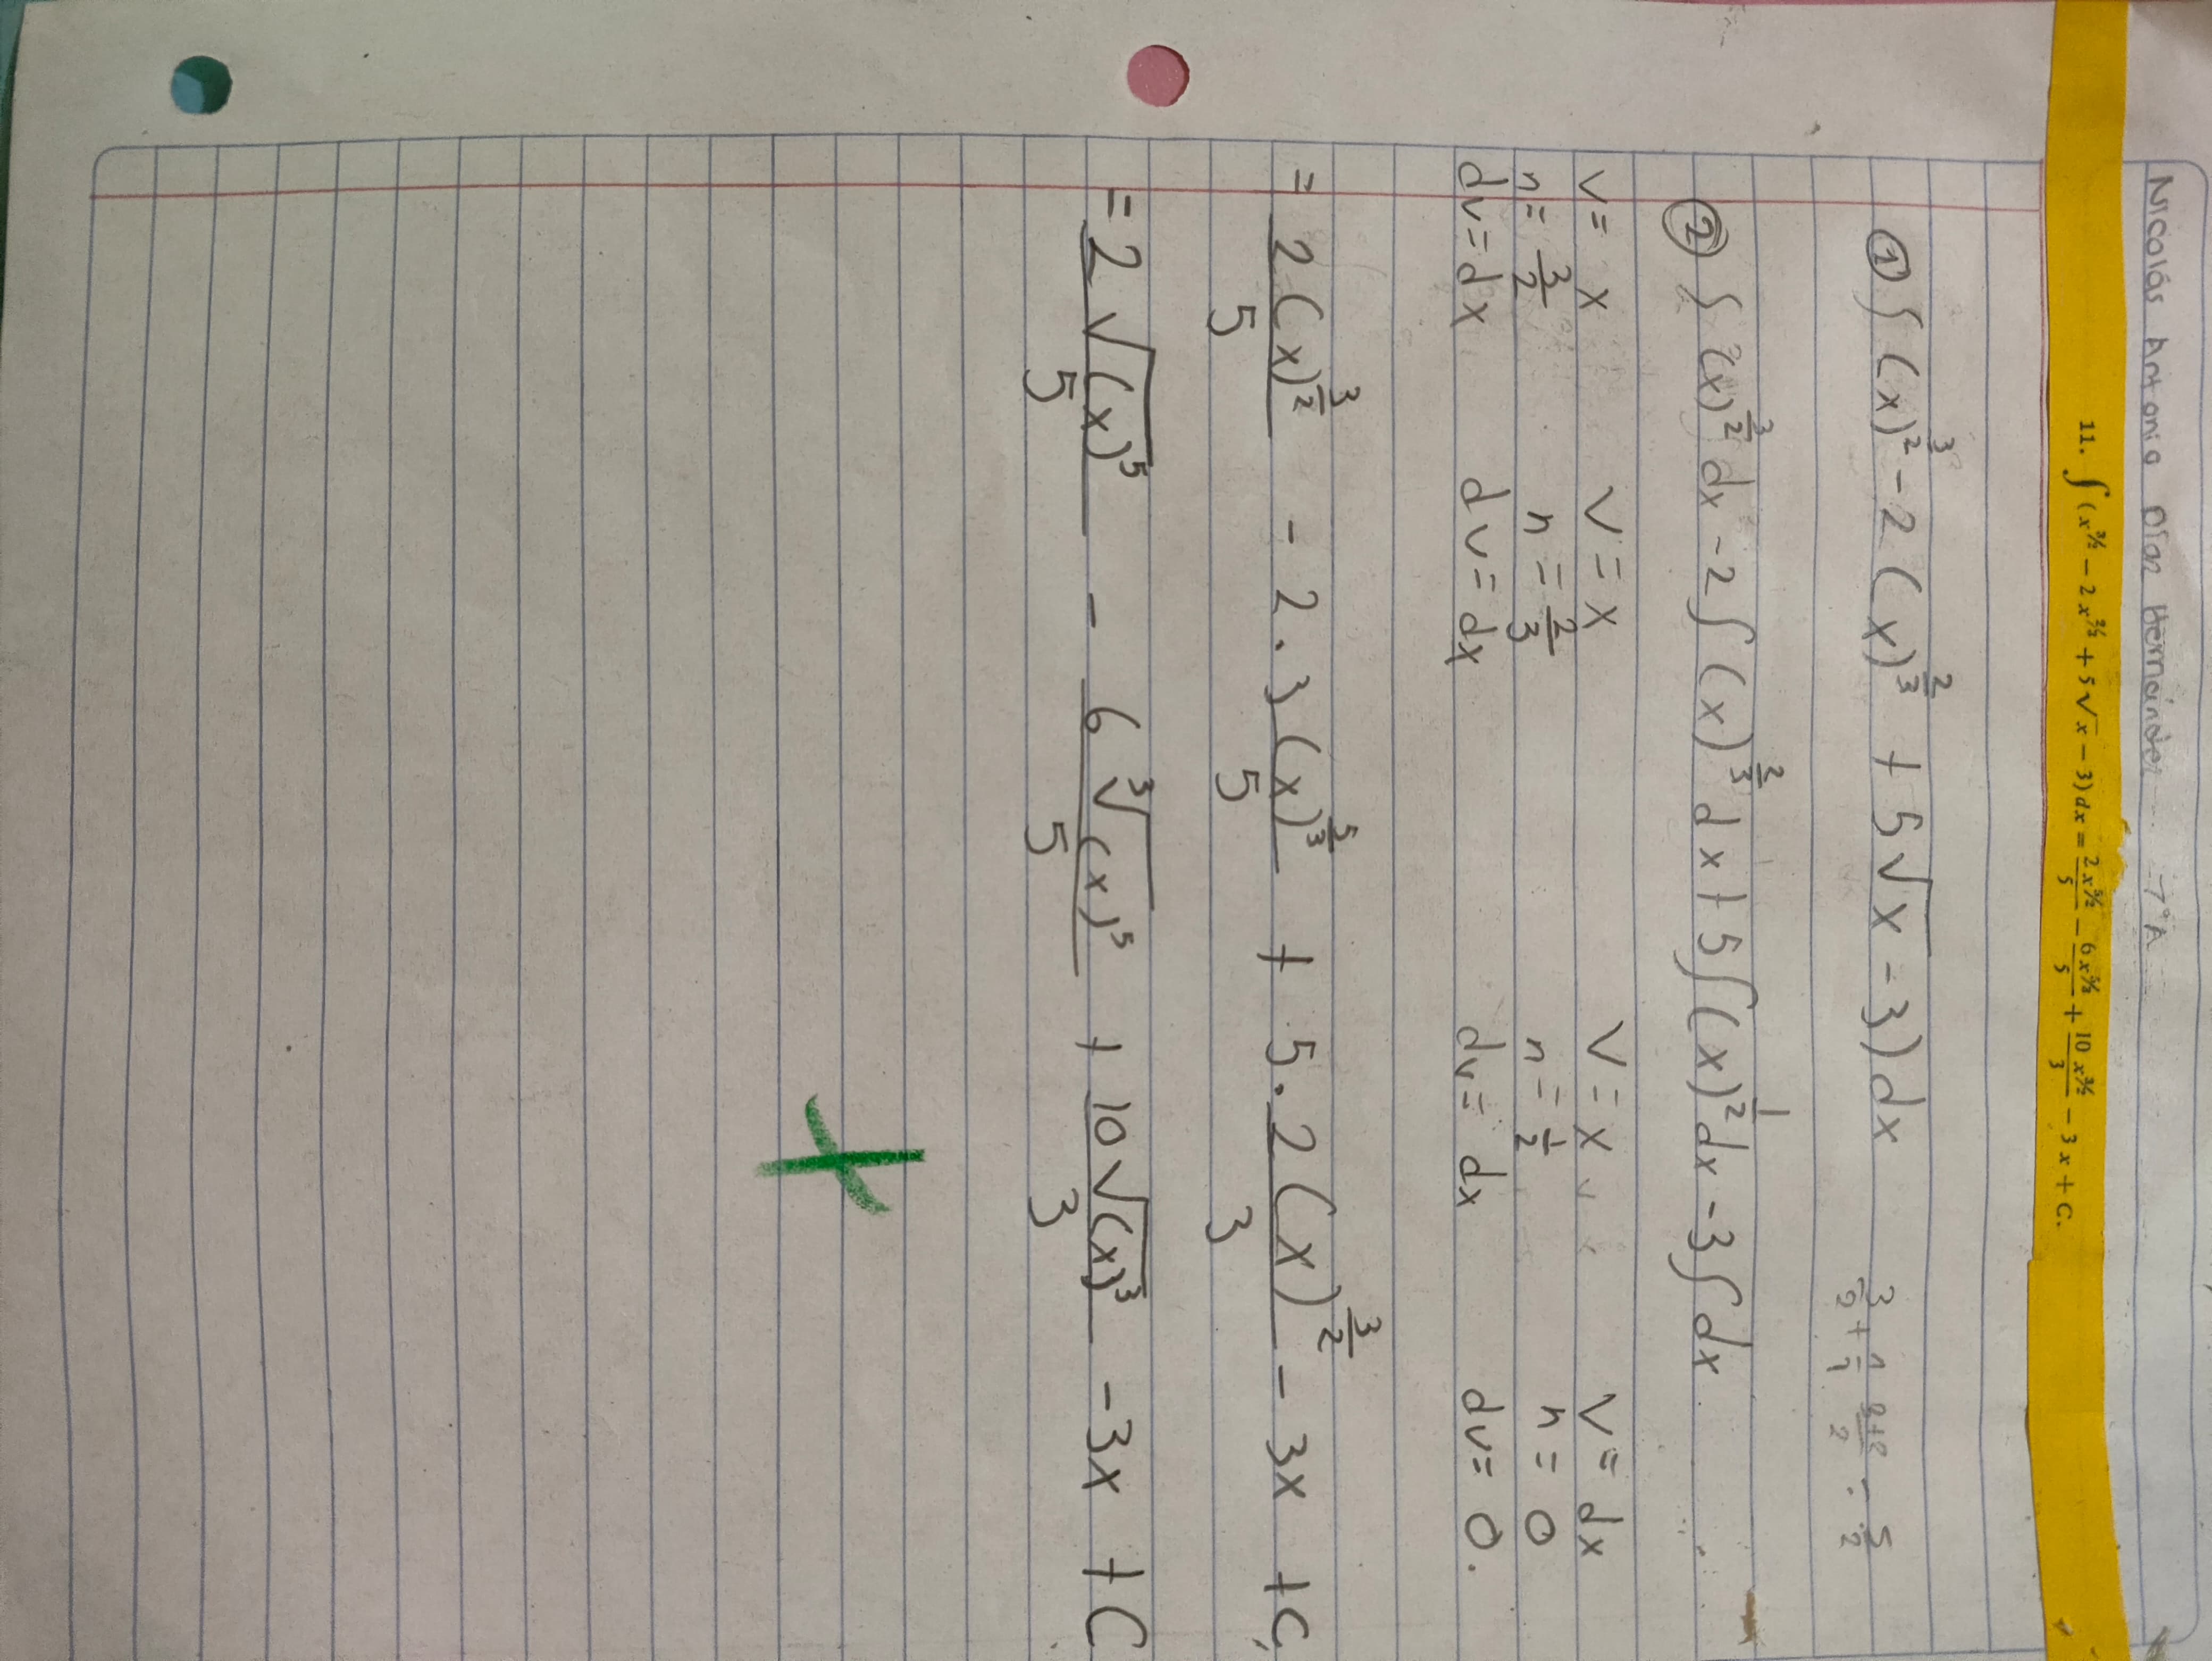 Nicolás Antonio Díaz Hernández 7°A
11. ∫ (x^3/2 − 2 x^2/3 + 5 √x − 3) dx = 2 x^5/2 / 5 − 6 x^5/3 / 5 + 10 x^3/2 / 3 − 3 x + C.
① ∫ (x)^3/2 - 2 (x)^2/3 + 5√x - 3) dx
3/2 + 1/1 3+2/2 = 5/2
② ∫ (x)^3/2 dx - 2∫ (x)^2/3 dx + 5∫(x)^1/2 dx - 3∫ dx
v= x v = x v = x v = dx
n= 3/2 n = 2/3 n = 1/2 n = 0
dv=dx dv= dx dv= dx dv= 0.
= 2(x)^3/2 / 5 - 2 . 3(x)^5/3 / 5 + 5. 2(x)^3/2 / 3 - 3x + C,
= 2√(x)^5 / 5 - 6 ³√(x)^5 / 5 + 10√(x)^3 / 3 - 3x + C